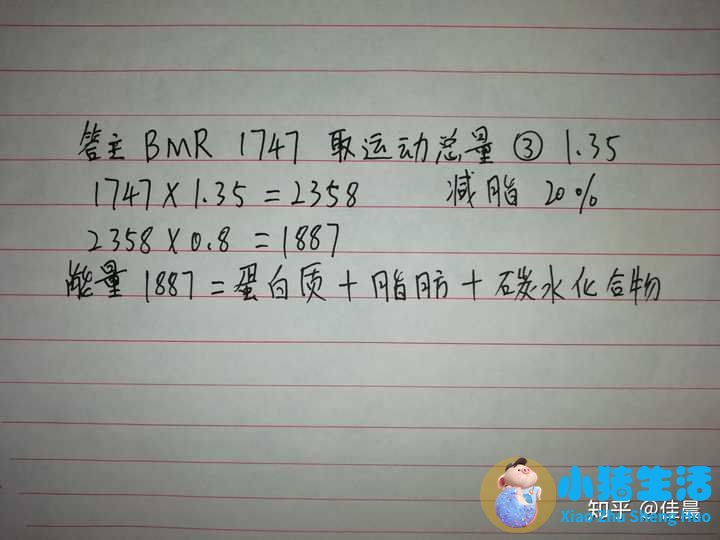 答主 BMR 1747 取运动总量 ③ 1.35
1747 × 1.35 = 2358 减脂 20%
2358 × 0.8 = 1887
能量 1887 = 蛋白质 + 脂肪 + 碳水化合物
小猪生活
知乎 @佳晨
Xiao Zhu Sheng Huo